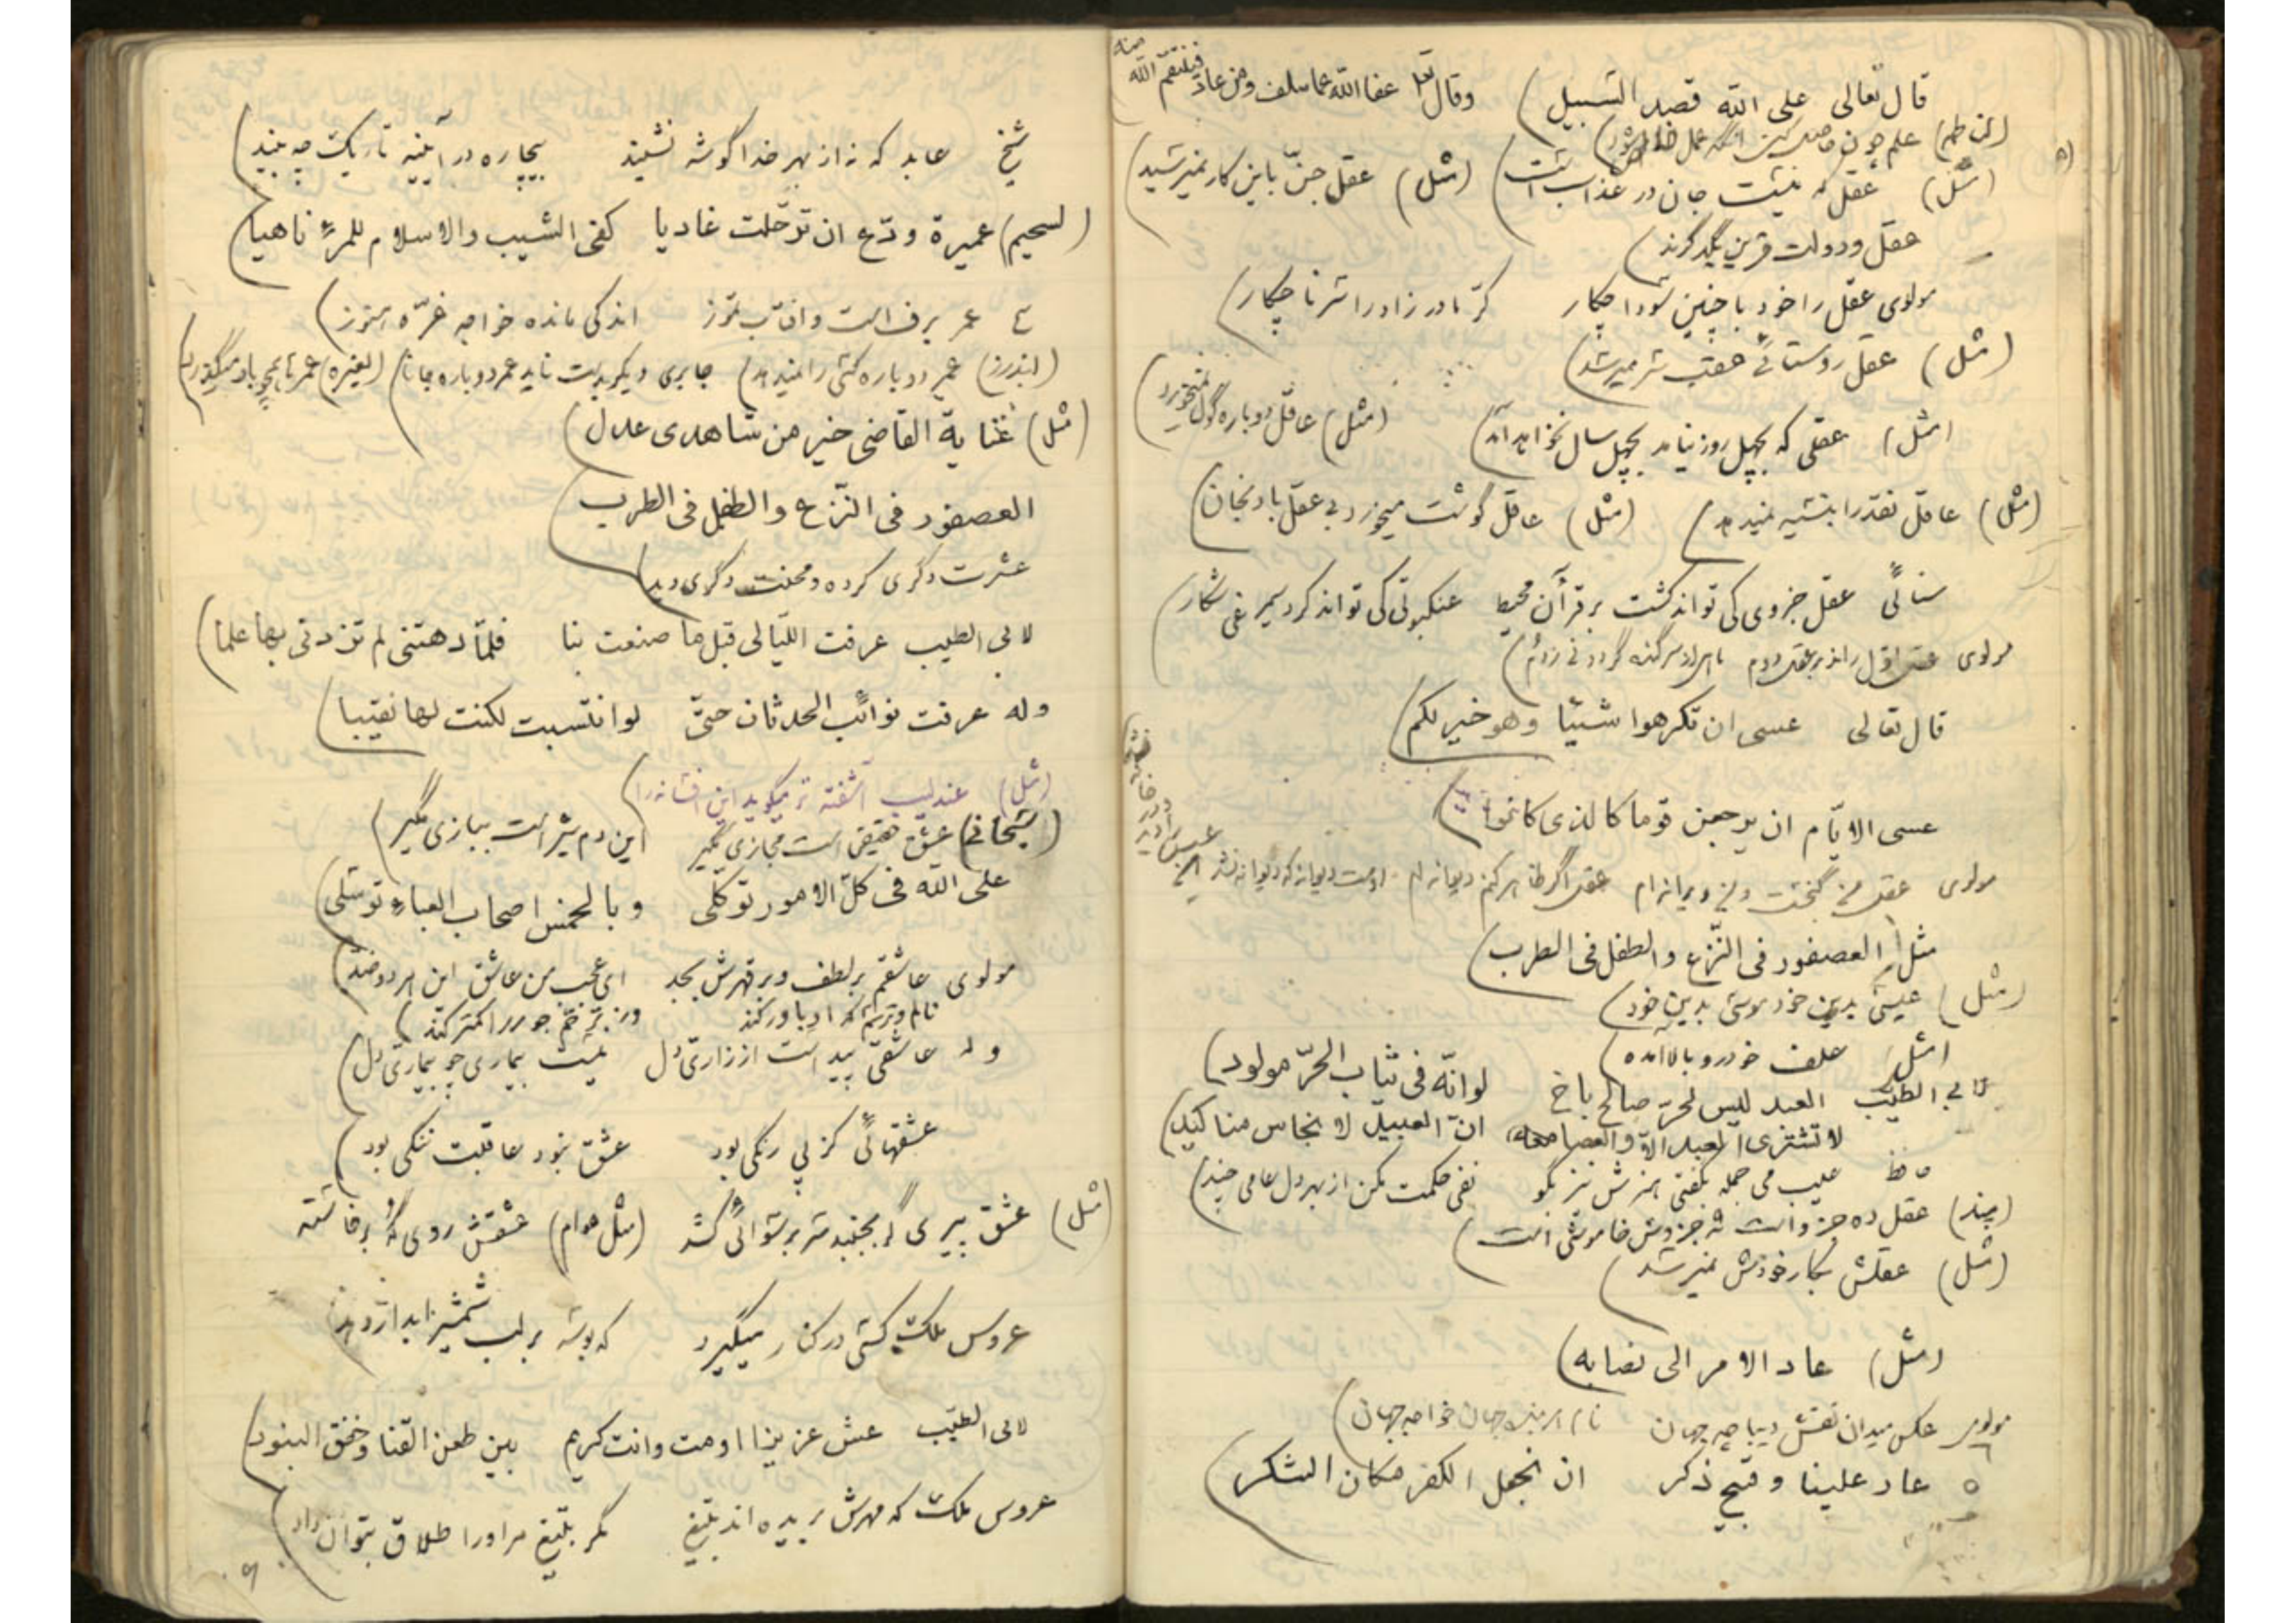 قال تعالی علی الله قصد السبیل) وقال تعا عفا الله عما سلف ومن عاد فینتقم الله منه
علم چون
(مثل) عقل که نیست جان در عذاب است) (مثل) عقل جنّ باین کار نمیرسید)
عقل و دولت قرین یکدگرند)
مولوی عقل را خود با چنین سودا چکار کرّ مادرزاد را سرنا چکار)
(مثل) عقل روستائی عقب سر میرسد)
(مثل) عقلی که بچهل روز نیامد بچهل سال نخواهد آمد) (مثل) عاقل دوباره گول نمیخورد)
(مثل) عاقل نقد را بنسیه نمیدهد) (مثل) عاقل گوشت میخورد بی عقل بادنجان)
سنائی عقل جزوی کی تواند گشت بر قرآن محیط عنکبوتی کی تواند کرد سیمرغی شکار)
مولوی عقل اول راند بر عقل دوم ماهی از سر گنده گردد نی ز دم)
قال تعالی عسی ان تکرهوا شیئا وهو خیر لکم)
عسی الایّام ان یرجعن قوما کالذی کانوا)
مولوی عقل من گنجست و من ویرانه ام اوست دیوانه که دیوانه نشد
مثل العصفور فی النّزع والطفل فی الطرب)
(مثل) عیسی بدین خود موسی بدین خود)
(مثل) علف خودرو بالا آمده)
لابی الطیّب العبد لیس لحرّ صالح باخ لو انّه فی ثیاب الحرّ مولود)
لا تشتری العبد الّا والعصا معه انّ العبید لانجاس مناکید)
حافظ عیب می جمله بگفتی هنرش نیز بگو نفی حکمت مکن از بهر دل عامی چند)
(پند) عقل ده جزو است نه جزوش خاموشی است)
(مثل) عقلش بکار خودش نمیرسد)
(مثل) عاد الامر الی نصابه)
مولوی عکس میدان نقش دیباجه جهان نام هر بنده جهان خواجه جهان)
عار علینا و قبیح ذکر ان نجعل الکفر مکان الشکر)
شیخ عابد که نه از بهر خدا گوشه نشیند بیچاره در آیینه تاریک چه بیند)
(لسحیم) عمیرة ودّع ان ترحّلت غادیا کفی الشیب والاسلام للمرء ناهیا)
عمر برف است و آفتاب تموز اندکی مانده خواجه غرّه هنوز)
(اندرز) عمر دوباره کسی را ندهند) (لغیره)
(مثل) عنایة القاضی خیر من شاهدی عدل)
العصفور فی النّزع والطفل فی الطرب)
عشرت دگری کرده و محنت دگری دید)
لابی الطیب عرفت اللیالی قبل ما صنعت بنا فلمّا دهتنی لم تزدنی بها علما)
وله عرفت نوائب الحدثان حتیّ لو انتسبت لکنت لها نقیبا)
(مثل) عندلیب آشفته تر میگوید این افسانه را)
عشق حقیقی است مجازی مگیر این دم شیر است ببازی مگیر)
علی الله فی کلّ الامور توکلی و بالخمس اصحاب العباء توسّلی)
مولوی عاشقم بر لطف و بر قهرش بجد ای عجب من عاشق این هر دو ضد)
نالم و ترسم که او باور کند وز ترحّم جور را کمتر کند)
وله عاشقی پیداست از زاری دل نیست بیماری چو بیماری دل)
عشقهائی کز پی رنگی بود عشق نبود عاقبت ننگی بود)
(مثل) عشق پیری گر بجنبد سر برسوائی کشد
عروس ملک کسی در کنار میگیرد که بوسه بر لب شمشیر آبدار دهد
لابی الطیّب عش عزیزا او مت وانت کریم بین طعن القنا وخفق البنود)
عروس ملک که مهرش بریده اند بتیغ مگر بتیغ مر او را طلاق بتوان داد)